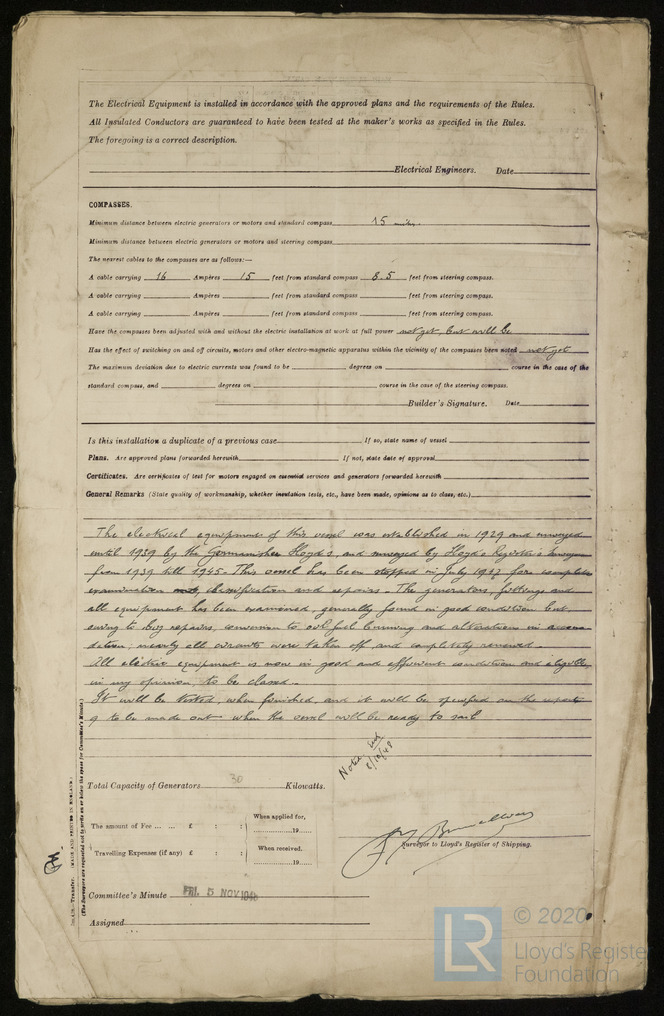 The Electrical Equipment is installed in accordance with the approved plans and the requirements of the Rules.
All Insulated Conductors are guaranteed to have been tested at the maker's works as specified in the Rules.
The foregoing is a correct description.
Electrical Engineers. Date
COMPASSES.
Minimum distance between electric generators or motors and standard compass 15
Minimum distance between electric generators or motors and steering compass
The nearest cables to the compasses are as follows:—
A cable carrying 16 Ampères 15 feet from standard compass 8.5 feet from steering compass.
A cable carrying Ampères feet from standard compass feet from steering compass.
A cable carrying Ampères feet from standard compass feet from steering compass.
Have the compasses been adjusted with and without the electric installation at work at full power not yet, but will be
Has the effect of switching on and off circuits, motors and other electro-magnetic apparatus within the vicinity of the compasses been noted not yet
The maximum deviation due to electric currents was found to be degrees on course in the case of the
standard compass, and degrees on course in the case of the steering compass.
Builder's Signature. Date
Is this installation a duplicate of a previous case If so, state name of vessel
Plans. Are approved plans forwarded herewith If not, state date of approval
Certificates. Are certificates of test for motors engaged on essential services and generators forwarded herewith
General Remarks (State quality of workmanship, whether insulation tests, etc., have been made, opinions as to class, etc.)
The electrical equipment of this vessel was established in 1929 and surveyed
until 1939 by the Germanischer Lloyds, and surveyed by Lloyd's Register's Surveyor
from 1939 till 1945. This vessel has been stopped in July 1947 for complete
examination classification and repairs. The generators, fittings and
all equipment has been examined, generally found in good condition but
owing to big repairs, conversion to oil fuel burning and alterations in accomo
dation, nearly all circuits were taken off and completely renewed.
All electric equipment is now in good and efficient condition and eligible
in my opinion to be classed.
It will be tested, when finished, and it will be specified on the reports
9 to be made out when the vessel will be ready to sail
Noted
8/10/48
Total Capacity of Generators 30 Kilowatts.
The amount of Fee ... ... £ : :
When applied for,
19
Travelling Expenses (if any) £ : :
When received,
19
Surveyor to Lloyd's Register of Shipping.
Committee's Minute FRI. 5 NOV 1948
Assigned
Transfer. (MADE AND PRINTED IN ENGLAND.)
(The Surveyors are requested not to write on or below the space for Committee's Minute.)
LR © 2020
Lloyd's Register
Foundation